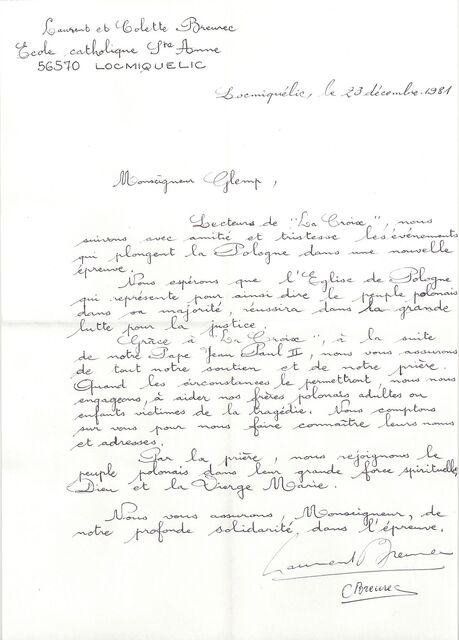 Laurent et Colette Breurec
Ecole catholique Ste Anne
56570 LOCMIQUELIC
Locmiquélic, le 23 décembre 1981
Monseigneur Glemp,
Lecteurs de "La Croix", nous
suivons avec amitié et tristesse les événements
qui plongent la Pologne dans une nouvelle
épreuve.
Nous espérons que l'Eglise de Pologne
qui représente pour ainsi dire le peuple polonais
dans sa majorité, réussira dans la grande
lutte pour la justice.
Grâce à "La Croix", à la suite
de notre Pape Jean Paul II, nous vous assurons
de tout notre soutien et de notre prière.
Quand les circonstances le permettront, nous nous
engageons, à aider nos frères polonais adultes ou
enfants victimes de la tragédie. Nous comptons
sur vous pour nous faire connaître leurs noms
et adresses.
Par la prière, nous rejoignons le
peuple polonais dans leur grande force spirituelle,
Dieu et la Vierge Marie.
Nous vous assurons, Monseigneur, de
notre profonde solidarité, dans l'épreuve.
Laurent Breurec
C Breurec